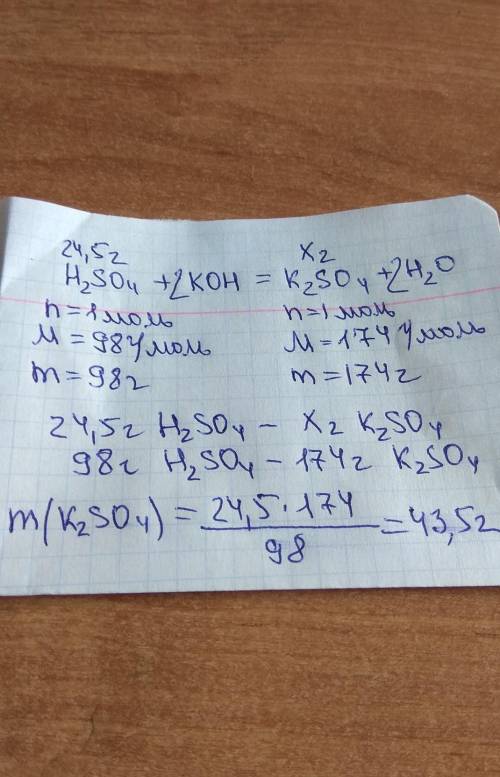 24,5г x г
H₂SO₄ + 2KOH = K₂SO₄ + 2H₂O
n = 1 моль n = 1 моль
M = 98 г/моль M = 174 г/моль
m = 98г m = 174г
24,5г H₂SO₄ – x г K₂SO₄
98г H₂SO₄ – 174г K₂SO₄
m(K₂SO₄) = 24,5·174 / 98 = 43,5г